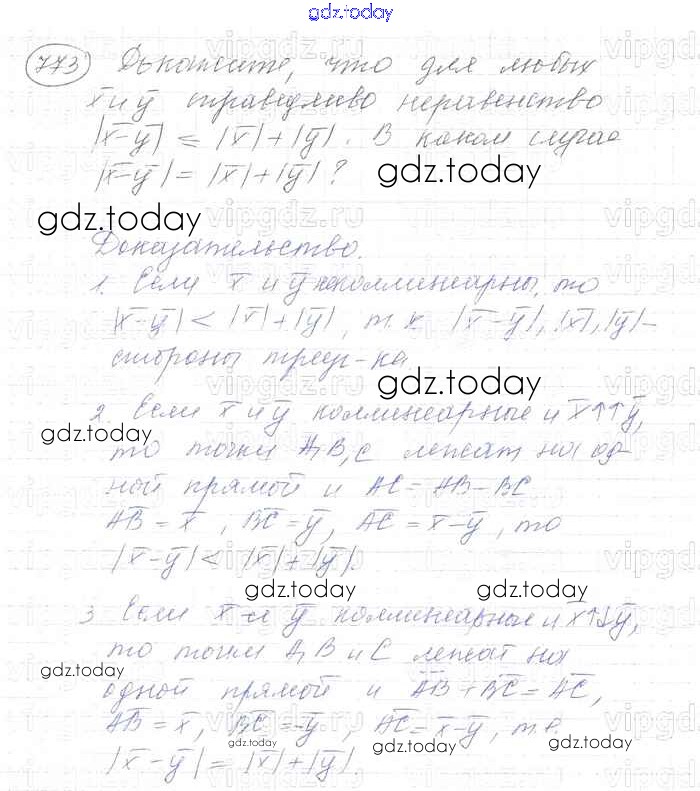 gdz.today
773 Докажите, что для любых
x̅ и y̅ справедливо неравенство
|x̅-y̅| ≤ |x̅|+|y̅|. В каком случае
|x̅-y̅| = |x̅|+|y̅|?
gdz.today
gdz.today
Доказательство.
1. Если x̅ и y̅ неколлинеарны, то
|x̅-y̅| < |x̅|+|y̅|, т.к. |x̅-y̅|, |x̅|, |y̅|-
стороны треуг-ка
gdz.today
2. Если x̅ и y̅ коллинеарные и x̅↑↑y̅,
gdz.today
то точки A, B, C лежат на од-
ной прямой и AC = AB - BC
A̅B̅ = x̅, B̅C̅ = y̅, A̅C̅ = x̅-y̅, то
|x̅-y̅| < |x̅|+|y̅|.
gdz.today gdz.today
3 Если x̅ и y̅ коллинеарные и x̅↑↓y̅,
то точки A, B и C лежат на
gdz.today
одной прямой и A̅B̅ + B̅C̅ = A̅C̅,
A̅B̅ = x̅, B̅C̅ = -y̅, A̅C̅ = x̅-y̅, т.е.
gdz.today gdz.today gdz.today
|x̅-y̅| = |x̅|+|y̅|